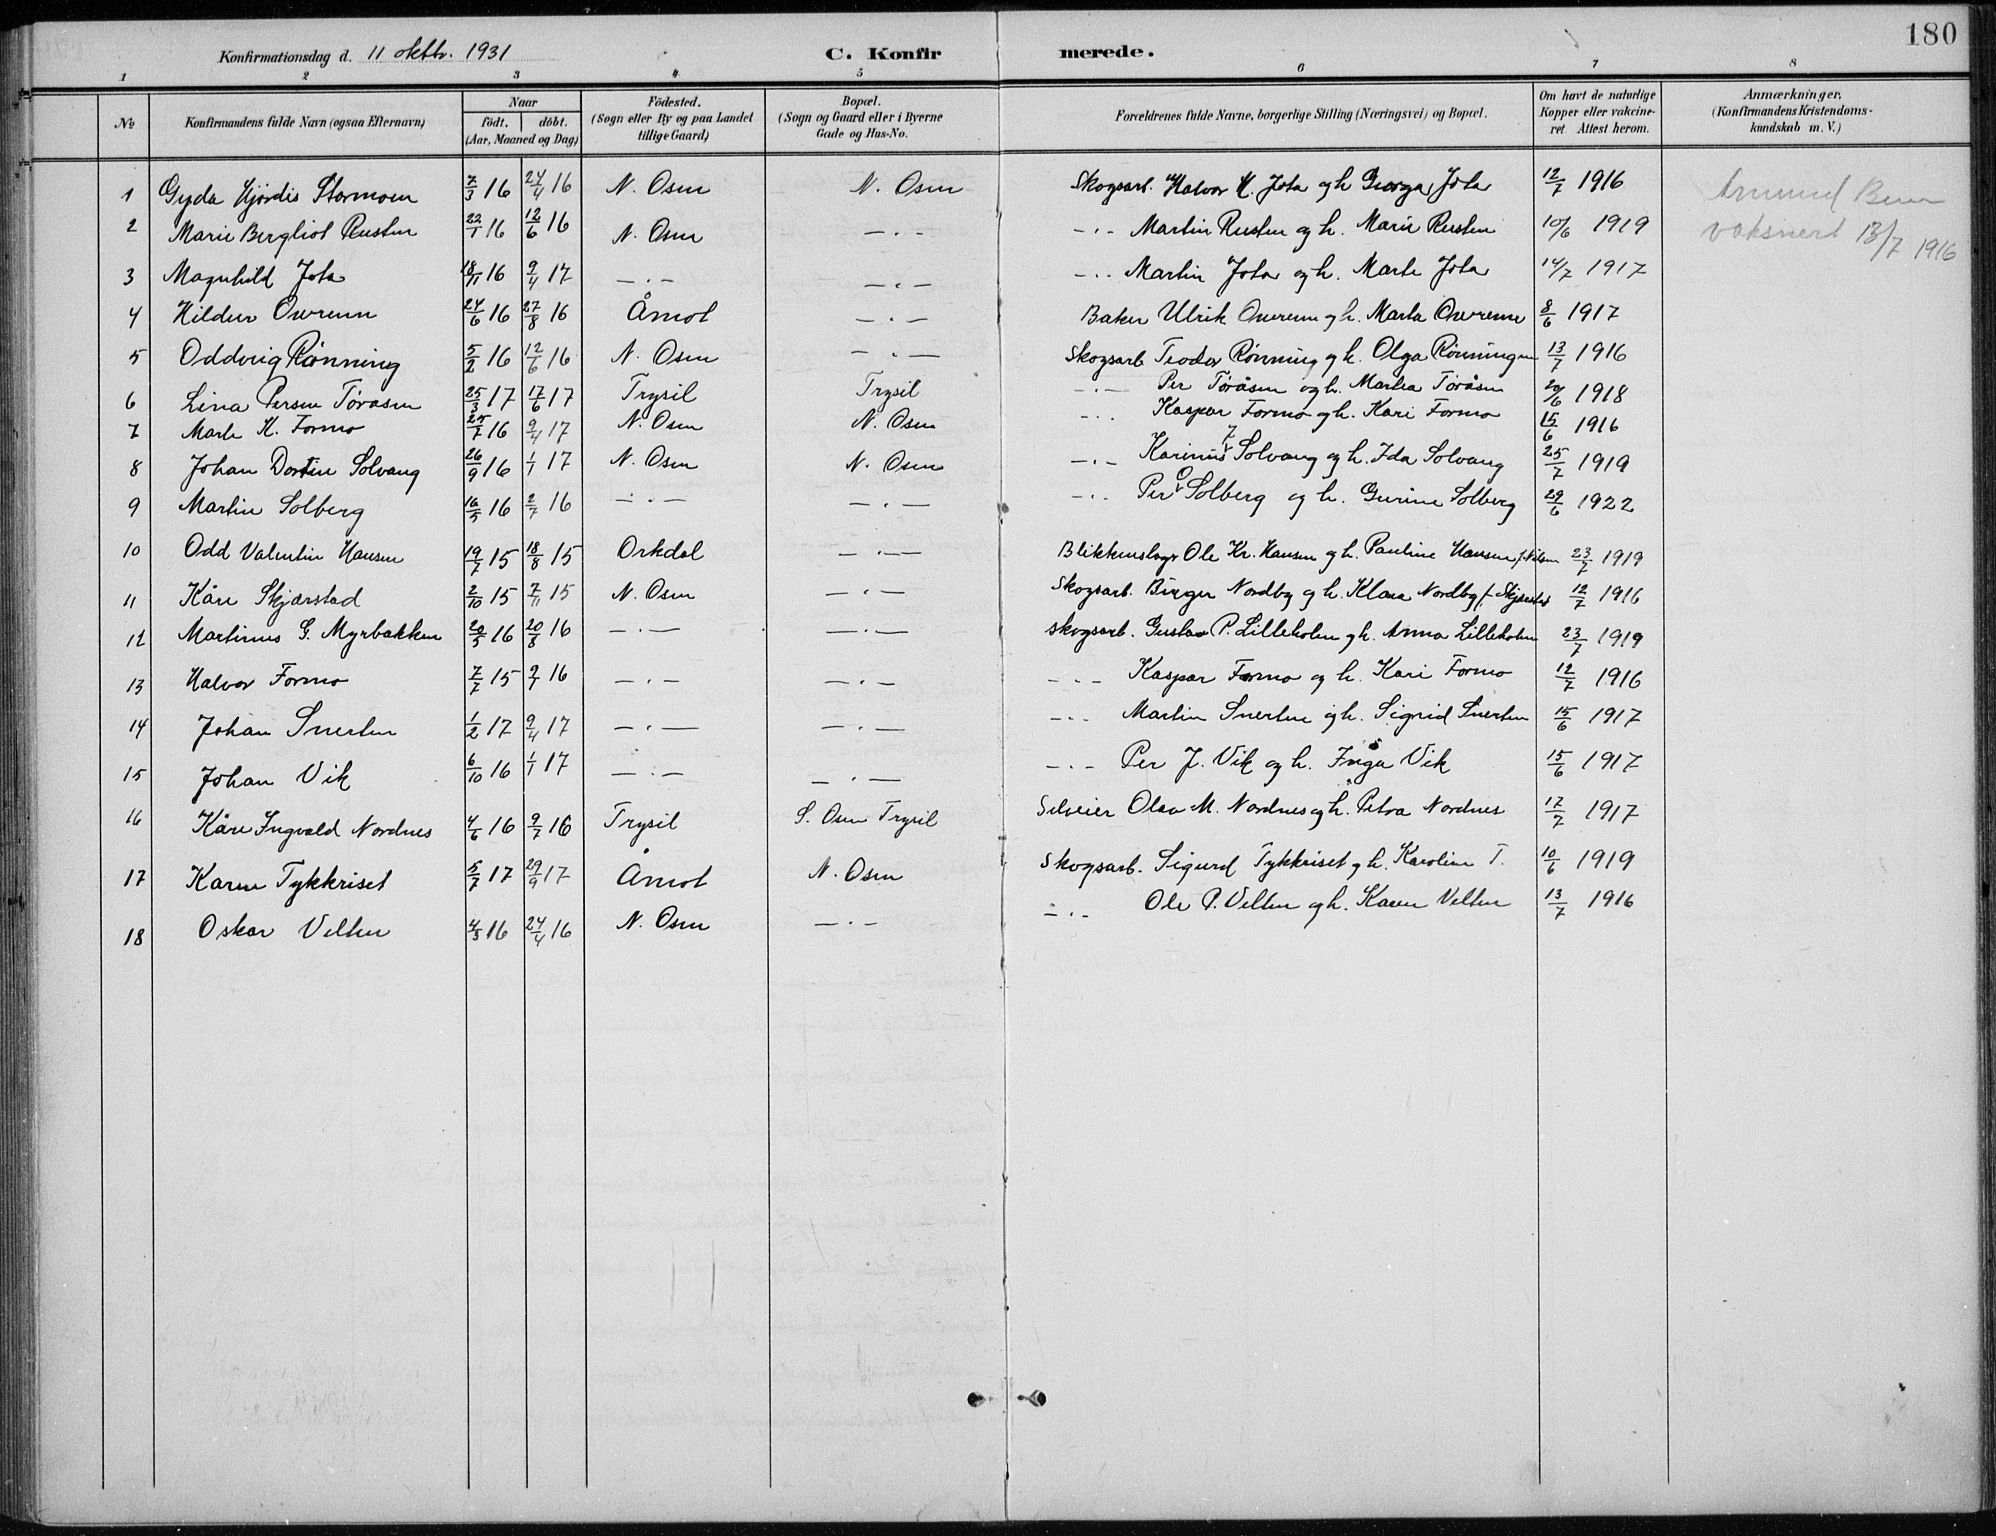 180
Konfirmationsdag d. 11 oktbr. 1931 C. Konfirmerede.
1 2 3 4 5 6 7 8
No Konfirmandens fulde Navn (ogsaa Efternavn) Naar födt. döbt. (Aar, Maaned og Dag) Födested. (Sogn eller By og paa Landet tillige Gaard) Bopæl. (Sogn og Gaard eller i Byerne Gade og Hus-No. Forældrenes fulde Navne, borgerlige Stilling (Næringsvei) og Bopæl. Om havt de naturlige Kopper eller vakcineret. Attest herom. Anmærkninger. (Konfirmandens Kristendomskundskab m. V.)
1 Gyda Hjørdis Stormoen 7/3 16 24/4 16 N. Osen N. Osen Skogsarb. Halvor H. Jota og h Georga Jota 12/7 1916 Amund
2 Marie Bergliot Rusten 22/1 16 12/6 16 N. Osen —·— —·— Martin Rusten og h. Marie Rusten 10/6 1919 vaksinert 13/7 1916
3 Magnhild Jota 18/11 16 9/4 17 —·— —·— —·— Martin Jota og h. Marte Jota 14/7 1917
4 Hildur Overenn 24/6 16 27/8 16 Åmot —·— Baker Ulrik Overenn og h. Marta Overenn 8/6 1917
5 Oddvig Rønning 5/2 16 12/6 16 N. Osen —·— Skogsarb Teodor Rønning og h. Olga Rønningen 13/7 1916
6 Lina Persen Tøråsen 25/3 17 17/6 17 Trysil Trysil —·— Per Tøråsen og h. Martea Tøråsen 20/6 1918
7 Marte K. Formo 25/7 16 9/4 17 N. Osen N. Osen —·— Kaspar Formo og h. Kari Formo 15/6 1916
8 Johan Dortin Solvang 26/9 16 1/1 17 N. Osen N. Osen —·— Karinus J. Solvang og h. Ida Solvang 25/7 1919
9 Martin Solberg 16/5 16 2/7 16 —·— —·— —·— Per O. Solberg og h. Gurine Solberg 29/6 1922
10 Odd Valentin Hansen 19/7 15 18/8 15 Orkdal —·— Blikkenslager Ole Kr. Hansen og h. Pauline Hansen f. Nilsen 23/7 1919
11 Kåre Skjærstad 2/10 15 7/11 15 N. Osen —·— Skogsarb. Birger Nordby og h. Klara Nordby f. Skjærstad 12/7 1916
12 Martinus G. Myrbakken 20/5 16 20/8 16 —·— —·— skogsarb. Gustav P. Lilleholen og h. Anna Lilleholen 23/7 1919
13 Halvor Formo 7/7 15 9/7 16 —·— —·— —·— Kaspar Formo og h. Kari Formo 12/7 1916
14 Johan Snerten 1/2 17 9/4 17 —·— —·— —·— Martin Snerten og h. Sigrid Snerten 15/6 1917
15 Johan Vik 6/10 16 1/1 17 —·— —·— —·— Per J. Vik og h. Inga Vik 15/6 1917
16 Kåre Ingvald Nordnes 4/6 16 9/7 16 Trysil S. Osen Trysil Olav M. Nordnes og h. Petra Nordnes 17/7 1917
17 Karen Tykkriset 5/7 17 29/9 17 Åmot N. Osen Skogsarb. Sigurd Tykkriset og h. Karoline T. 10/6 1919
18 Oskar Velten 4/3 16 24/4 16 N. Osen —·— —·— Ole P. Velten og h. Karen Velten 13/7 1916